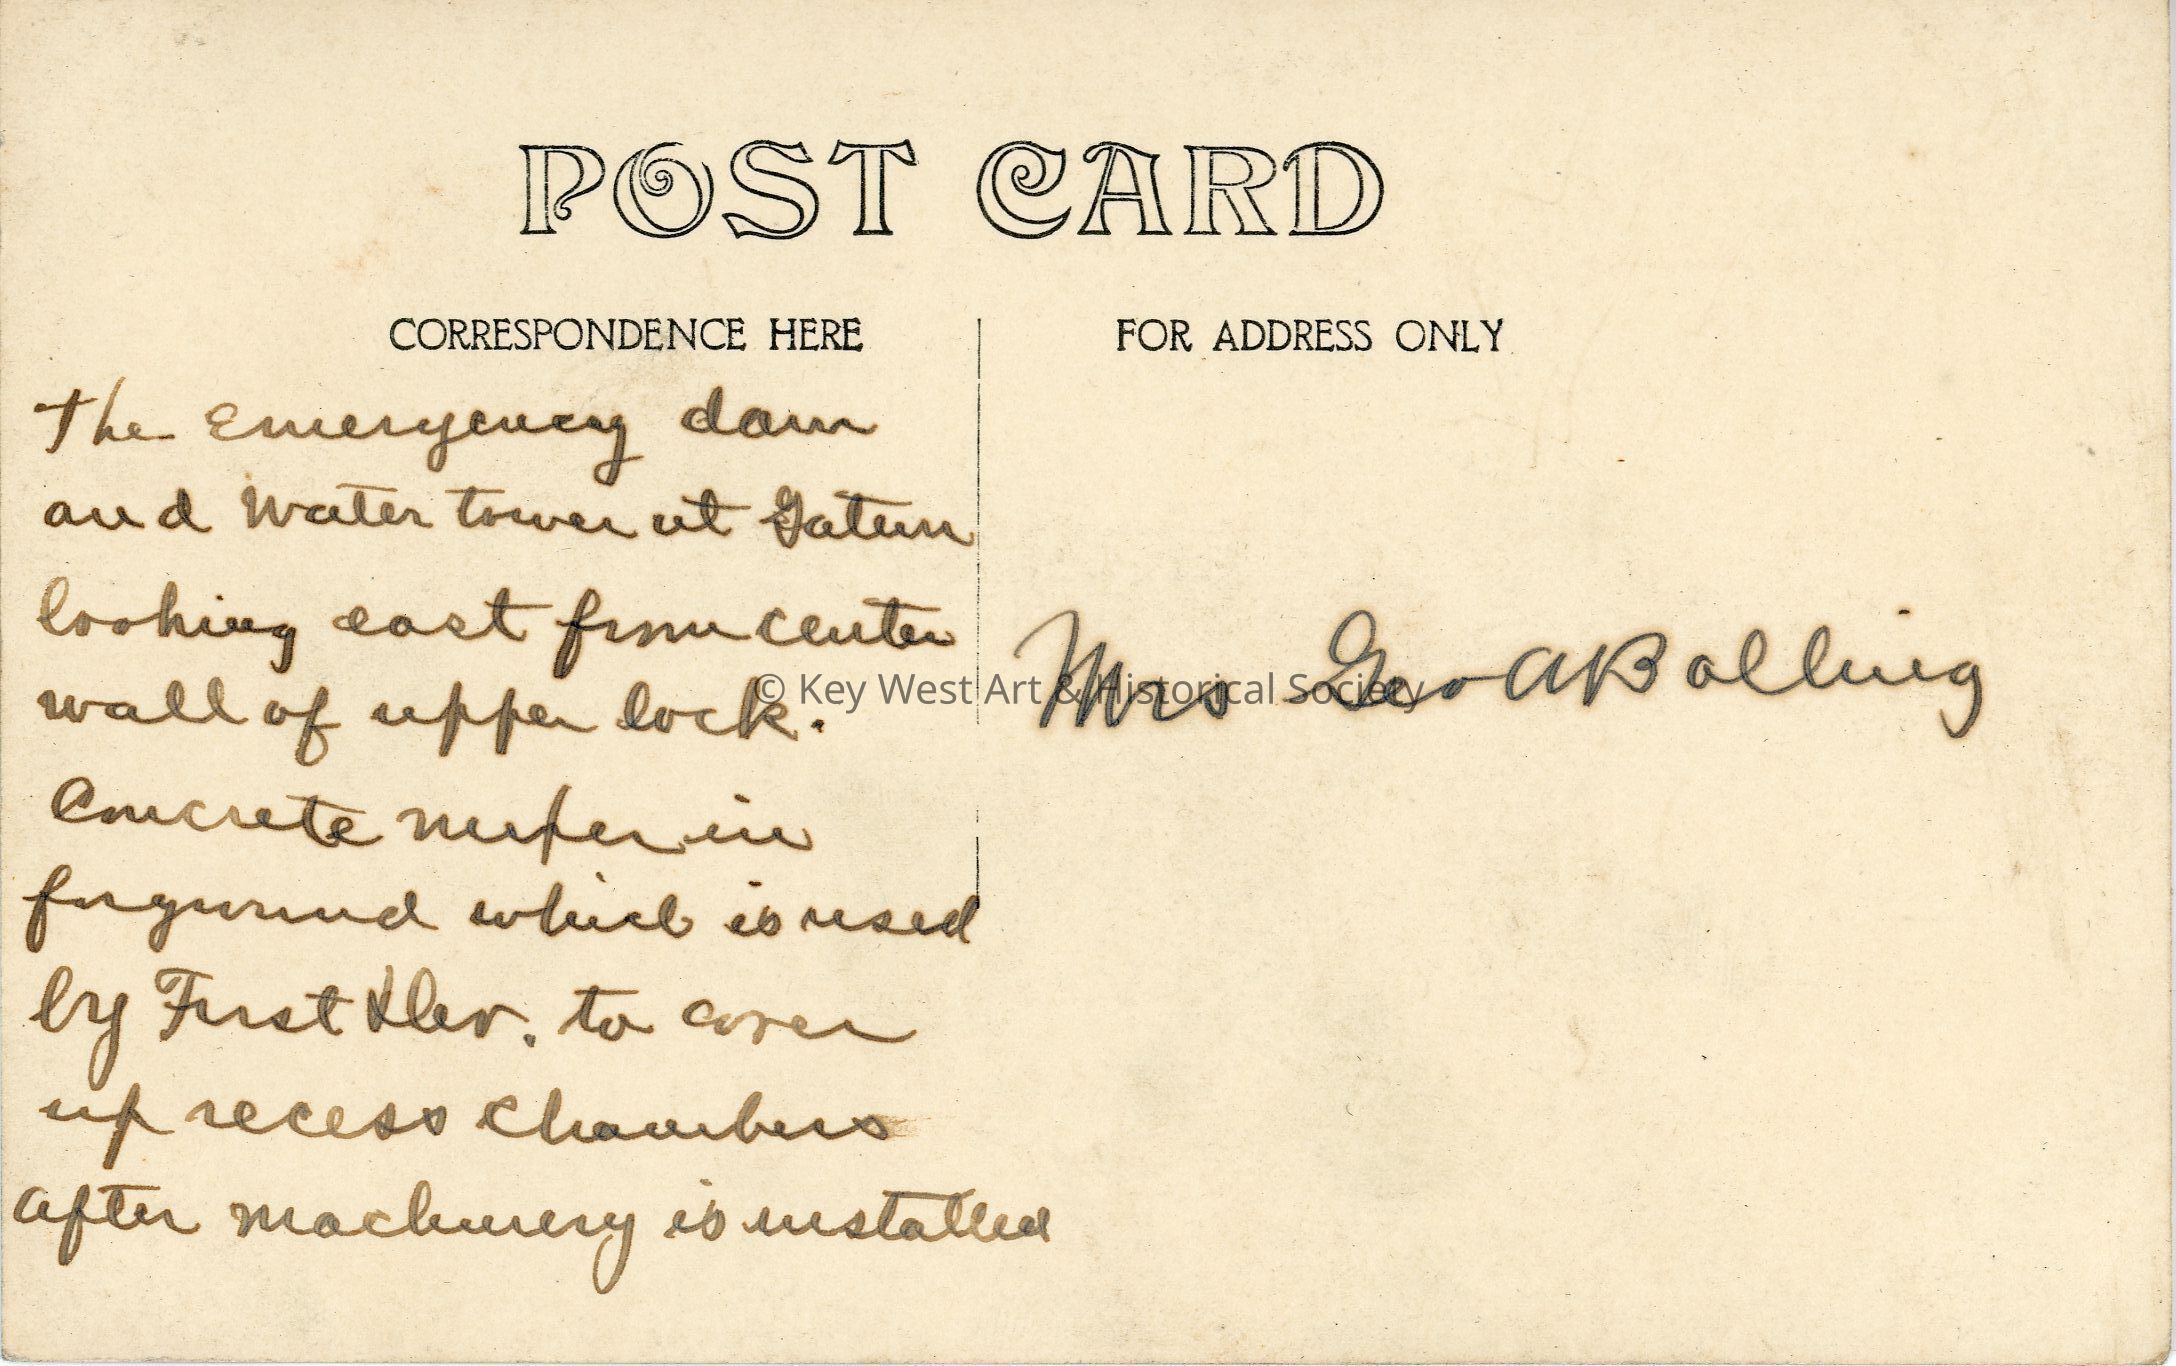 POST CARD
CORRESPONDENCE HERE
FOR ADDRESS ONLY
The Emergency dam
and Water tower at Gatun
looking east from center
wall of upper lock.
Concrete mixer in
forground which is used
by First Div. to cover
up recess chambers
after machinery is installed
Mrs Geo A Bolling
© Key West Art & Historical Society